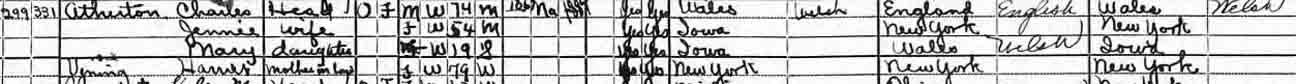 299 331 Atherton Charles Head O F M W 74 M Na Yes Yes Wales Welsh England English Wales Welsh
Jennie wife F W 54 M Yes Yes Iowa New York New York
Mary daughter F W 19 S Yes Yes Iowa Wales Welsh Iowa
Harriet mother in law F W 79 W Yes Yes New York New York New York